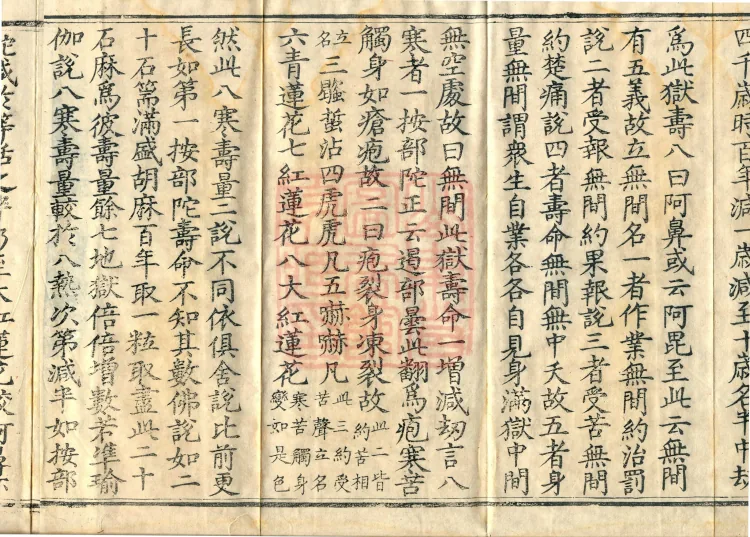 四千歲時百年減一歲減至十歲名半中劫
爲此獄壽八曰阿鼻或云阿毘至此云無間
有五義故立無間名一者作業無間約治罰
說二者受報無間約果報說三者受苦無間
約楚痛說四者壽命無間無中夭故五者身
量無間謂衆生自業各各自見身滿獄中間
無空處故曰無間此獄壽命一增減劫言八
寒者一按部陀正云遏部曇此翻爲疱寒苦
觸身如瘡疱故二曰疱裂身凍裂故此二皆約苦相
立名三蜇沾四虎虎凡五嚇嚇凡此三約受苦聲立名
六青蓮花七紅蓮花八大紅蓮花寒苦觸身變如是色
然此八寒壽量二說不同依俱舍說比前更
長如第一按部陀壽命不知其數佛說如二
十石篅滿盛胡麻百年取一粒取盡此二十
石麻爲彼壽量餘七地獄倍倍增數若準瑜
伽說八寒壽量較於八熱次第減半如按部
陀減於等活之半乃至大紅蓮花較阿鼻